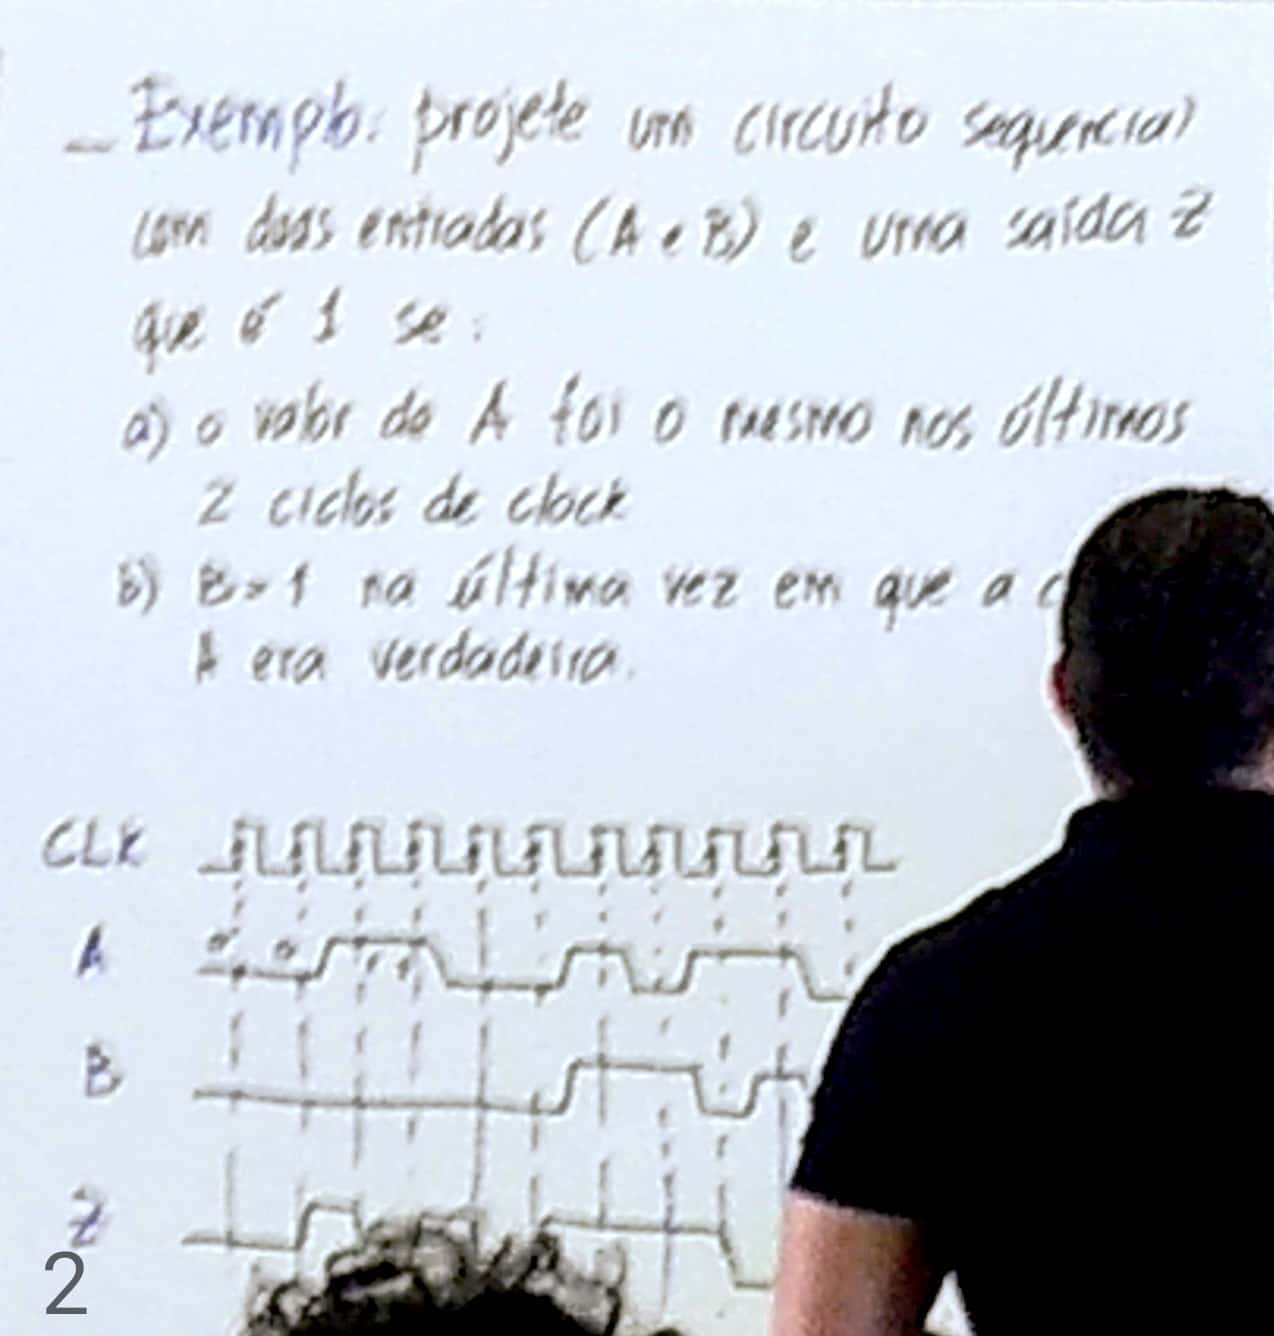 – Exemplo: projete um circuito sequencial
com duas entradas (A e B) e uma saída Z
que é 1 se:
a) o valor de A foi o mesmo nos últimos
2 ciclos de clock
b) B=1 na última vez em que a
A era verdadeira.
CLK
A 0 0 1 1
B
Z
2